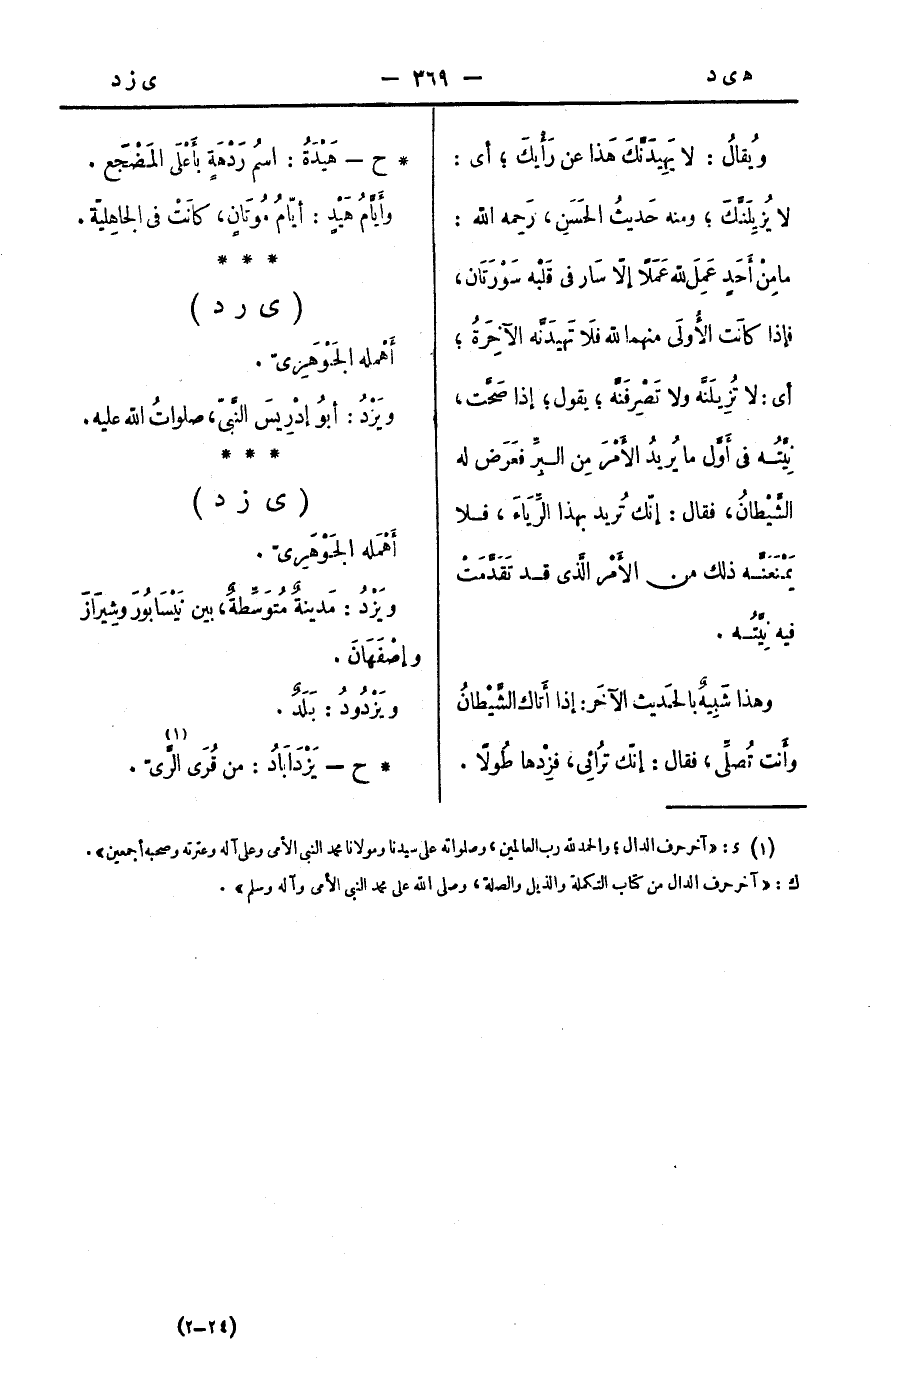 ه ى د
— ٣٦٩ —
ى ز د
ويُقالُ : لا يَهِيدَنَّكَ هَذا عن رَأْيِكَ ؛ أى :
لا يُزِيلَنَّكَ ؛ ومنه حَديثُ الحَسَنِ ، رَحِمه الله :
مامِنْ أَحَدٍ عَمِلَ لله عَمَلًا إلّا سَار فى قَلْبِه سَوْرَتَان ،
فإذا كانَت الأُولَى منهما لله فَلَا تَهِيدَنَّه الآخِرَةُ ؛
أى : لا تُزِيلَنَّه ولا تَصْرِفَنَّه ؛ يقول ؛ إذا صَحَّت ،
نِيَّتُـه فى أوَّل ما يُريدُ الأَمْرَ مِن الـبِرِّ فعَرَض له
الشَّيْطانُ ، فقال : إنّك تُريد بهذا الرِّيَاءَ ، فـلا
يَمْنَعَنَّـه ذلك مـن الأَمْر الَّذى قـد تَقَدَّمَتْ
فيه نِيَّتُـه .
وهذا شَبِيهٌ بالحَديث الآخَر : إذا أَتاك الشَّيْطانُ
وأَنت تُصلِّى ، فقال : إنّك تُرائِى ، فزِدْها طُولًا .
* ح — هَيْدَةُ : اسمُ رَدْهَةٍ بأَعْلَى المَضْجَع .
وأيّامُ هَيْدٍ : أيّامُ مُوتَانٍ ، كانَتْ فى الجاهليّة .
* * *
( ى ر د )
أَهْمله الجَوْهَرِىّ .
ويَرْدُ : أبُو إدْرِيسَ النَّبِىّ ، صلواتُ الله عليه .
* * *
( ى ز د )
أَهْمَله الجَوْهَرِىّ .
ويَزْدُ : مَدينةٌ مُتَوَسِّطةٌ ، بين نَيْسَابُورَ وشِيرَازَ
وإصْفَهَانَ .
ويَزْدُودُ : بَلَدٌ .
* ح — يَزْدَابَادُ : من قُرَى الرَّىّ (١) .
(١) ى : «آخر حرف الدال ؛ والحمد لله رب العالمين ، وصلواته على سيدنا ومولانا محمد النبى الأمى وعلى آله وعترته وصحبه أجمعين» .
ك : «آخر حرف الدال من كتاب التكملة والذيل والصلة ، وصلى الله على محمد النبى الأمى وآله وسلم» .
(٢٤–٢)